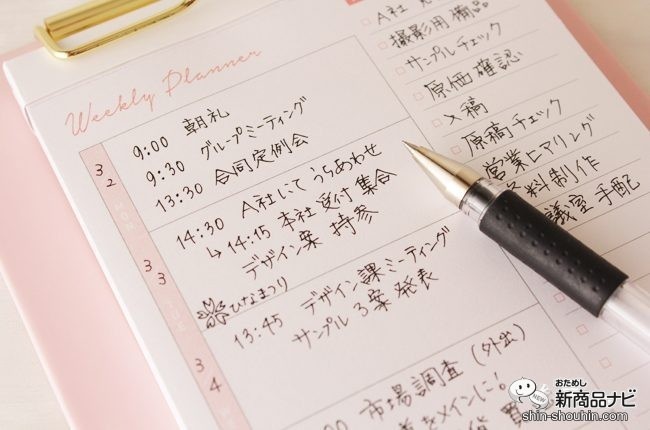 Weekly Planner
3
2
MON
9:00 朝礼
9:30 グループミーティング
13:30 合同定例会
3
3
TUE
14:30 A社にて うちあわせ
↳ 14:15 本社受付集合
デザイン案 持参
ひなまつり
3
4
13:45 デザイン課ミーティング
サンプル3案 発表
:00 市場調査 (外出)
をメインに!
A社
撮影用備品
サンプルチェック
原価確認
入稿
原稿チェック
営業ヒアリング
料制作
議室手配
おためし
新商品ナビ
shin-shouhin.com